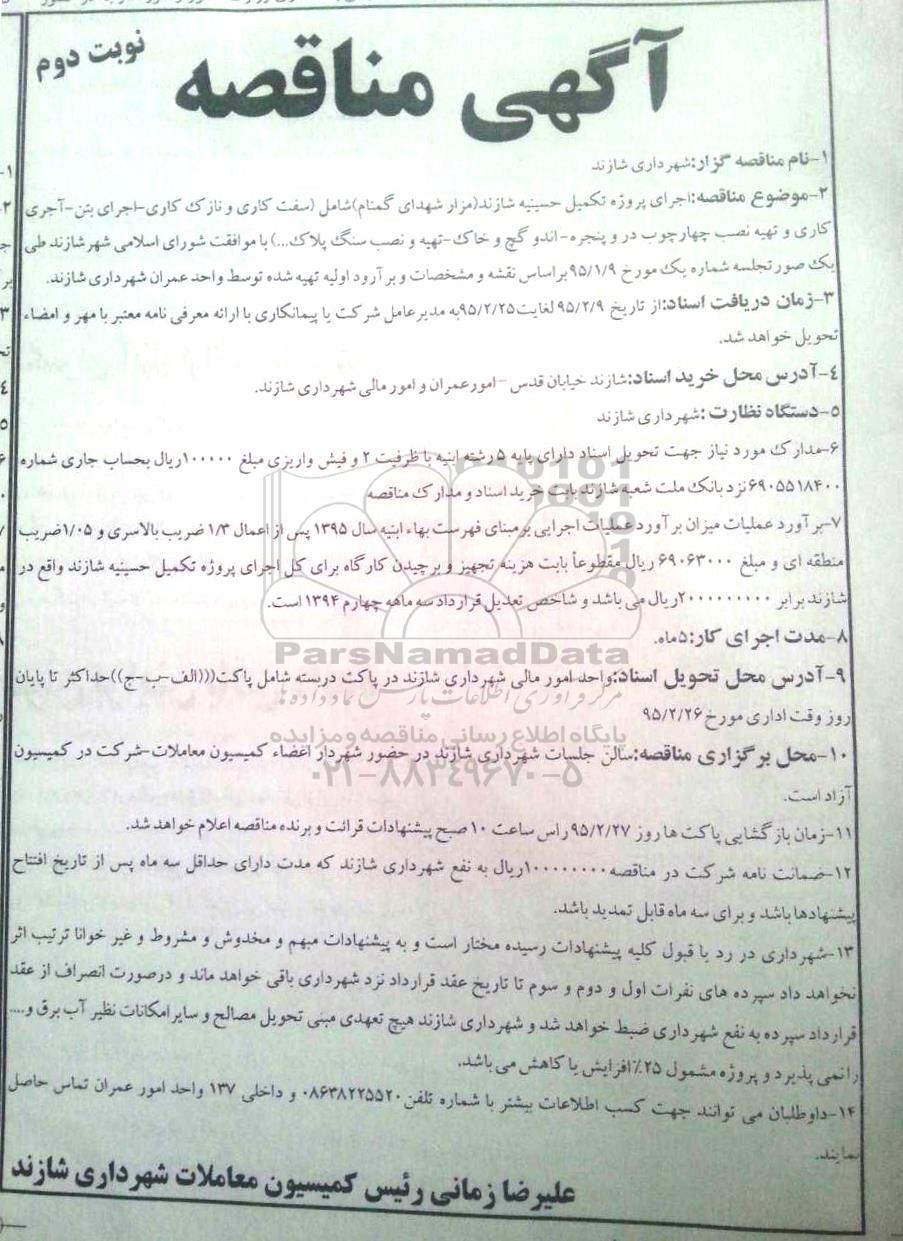 نوبت دوم
آگهی مناقصه
۱-نام مناقصه گزار:شهرداری شازند
۲-موضوع مناقصه:اجرای پروژه تکمیل حسینیه شازند(مزار شهدای گمنام)شامل (سفت کاری و نازک کاری-اجرای بتن-آجری
کاری و تهیه نصب چهارچوب در و پنجره-اندو گچ و خاک-تهیه و نصب سنگ پلاک...) با موافقت شورای اسلامی شهر شازند طی
یک صورتجلسه شماره یک مورخ ۹۵/۱/۹ براساس نقشه و مشخصات و برآرود اولیه تهیه شده توسط واحد عمران شهرداری شازند.
۳-زمان دریافت اسناد:از تاریخ ۹۵/۲/۹ لغایت ۹۵/۲/۲۵ به مدیرعامل شرکت یا پیمانکاری با ارائه معرفی نامه معتبر با مهر و امضاء
تحویل خواهد شد.
۴-آدرس محل خرید اسناد:شازند خیابان قدس -امور عمران و امور مالی شهرداری شازند.
۵-دستگاه نظارت :شهرداری شازند
۶-مدارک مورد نیاز جهت تحویل اسناد دارای پایه ۵ رشته ابنیه با ظرفیت ۲ و فیش واریزی مبلغ ۱۰۰۰۰۰ ریال بحساب جاری شماره
۶۹۰۵۵۱۸۴۰۰ نزد بانک ملت شعبه شازند بابت خرید اسناد و مدارک مناقصه
۷-برآورد عملیات میزان برآورد عملیات اجرایی بر مبنای فهرست بهاء ابنیه سال ۱۳۹۵ پس از اعمال ۱/۳ ضریب بالاسری و ۱/۰۵ ضریب
منطقه ای و مبلغ ۶۹۰۶۳۰۰۰ ریال مقطوعاً بابت هزینه تجهیز و برچیدن کارگاه برای کل اجرای پروژه تکمیل حسینیه شازند واقع در
شازند برابر ۲۰۰۰۰۰۰۰۰۰ ریال می باشد و شاخص تعدیل قرارداد سه ماهه چهارم ۱۳۹۴ است.
۸-مدت اجرای کار:۵ماه.
۹-آدرس محل تحویل اسناد:واحد امور مالی شهرداری شازند در پاکت دربسته شامل پاکت(((الف-ب-ج))حداکثر تا پایان
روز وقت اداری مورخ ۹۵/۲/۲۶
۱۰-محل برگزاری مناقصه:سالن جلسات شهرداری شازند در حضور شهردار اعضاء کمیسیون معاملات-شرکت در کمیسیون
آزاد است.
۱۱-زمان بازگشایی پاکت ها روز ۹۵/۲/۲۷ راس ساعت ۱۰ صبح پیشنهادات قرائت و برنده مناقصه اعلام خواهد شد.
۱۲-ضمانت نامه شرکت در مناقصه ۱۰۰۰۰۰۰۰۰ ریال به نفع شهرداری شازند که مدت دارای حداقل سه ماه پس از تاریخ افتتاح
پیشنهادها باشد و برای سه ماه قابل تمدید باشد.
۱۳-شهرداری در رد یا قبول کلیه پیشنهادات رسیده مختار است و به پیشنهادات مبهم و مخدوش و مشروط و غیر خوانا ترتیب اثر
نخواهد داد سپرده های نفرات اول و دوم و سوم تا تاریخ عقد قرارداد نزد شهرداری باقی خواهد ماند و درصورت انصراف از عقد
قرارداد سپرده به نفع شهرداری ضبط خواهد شد و شهرداری شازند هیچ تعهدی مبنی تحویل مصالح و سایر امکانات نظیر آب برق و....
را نمی پذیرد و پروژه مشمول ۲۵٪ افزایش یا کاهش می باشد.
۱۴-داوطلبان می توانند جهت کسب اطلاعات بیشتر با شماره تلفن ۰۸۶۳۸۲۲۵۵۲۰ و داخلی ۱۳۷ واحد امور عمران تماس حاصل
نمایند.
علیرضا زمانی رئیس کمیسیون معاملات شهرداری شازند
ParsNamadData
مرکز فرآوری اطلاعات پارس نماد داده ها
پایگاه اطلاع رسانی مناقصه و مزایده
۰۲۱-۸۸۳۴۹۶۷۰-۵